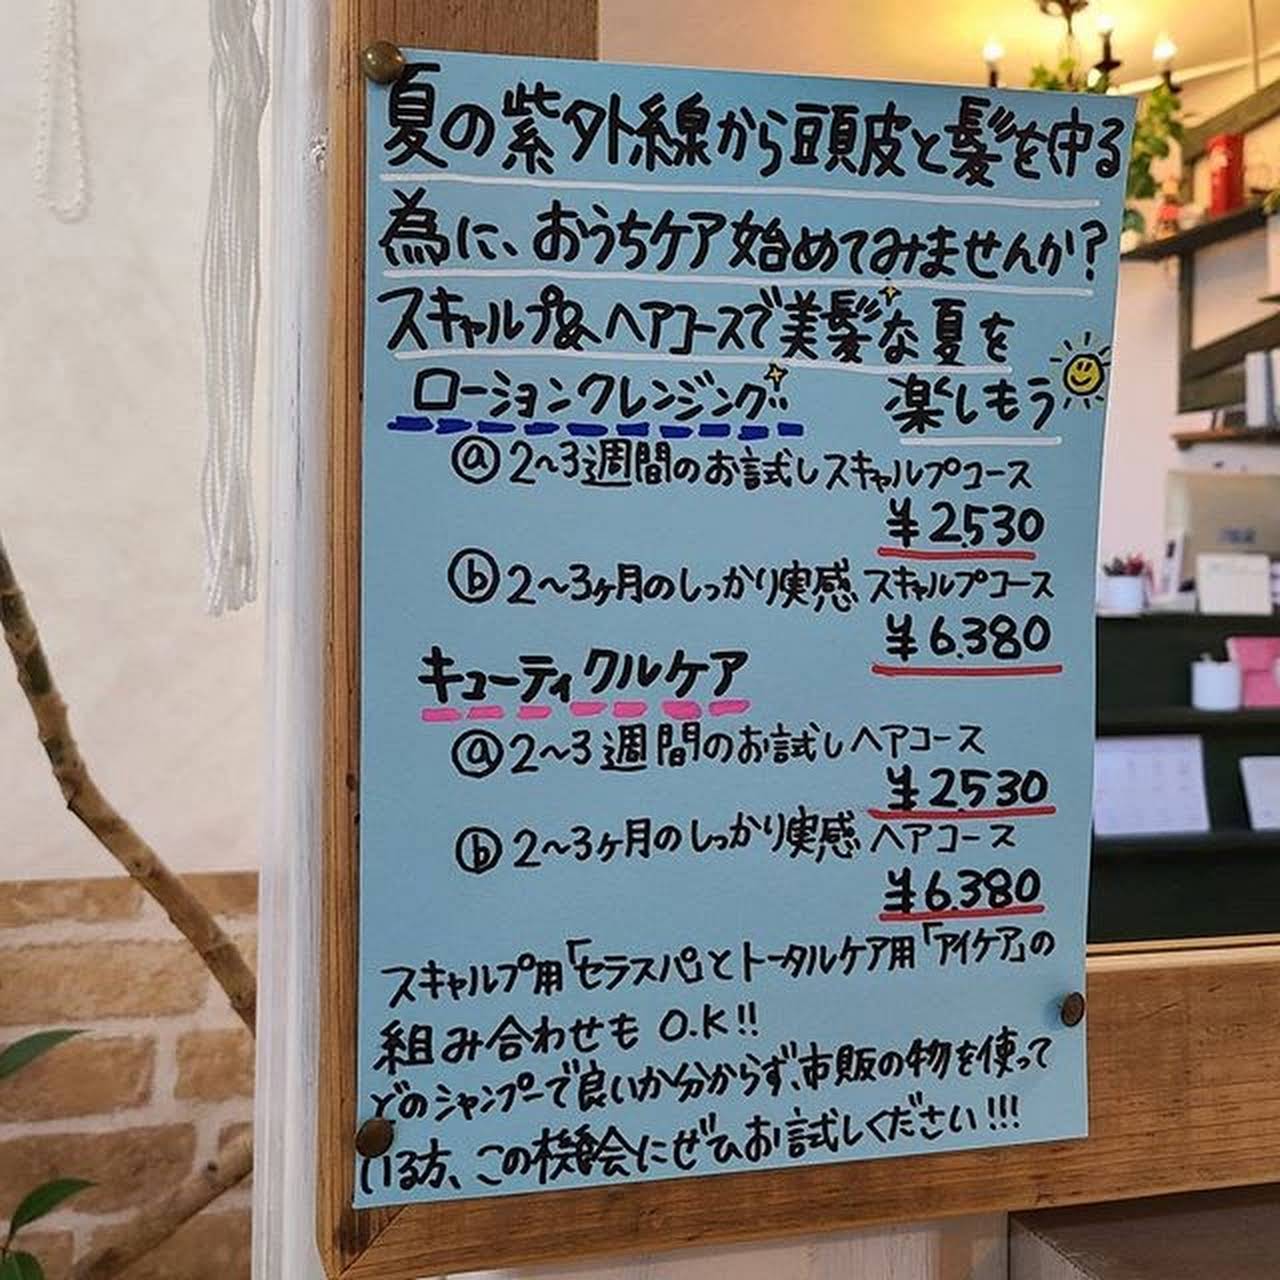 夏の紫外線から頭皮と髪を守る
為に、おうちケア始めてみませんか?
スキャルプ&ヘアコースで美髪な夏を
楽しもう
ローションクレンジング
ⓐ2~3週間のお試しスキャルプコース
¥2.530
ⓑ2~3ヶ月のしっかり実感 スキャルプコース
¥6.380
キューティクルケア
ⓐ2~3週間のお試しヘアコース
¥2.530
ⓑ2~3ヶ月のしっかり実感 ヘアコース
¥6.380
スキャルプ用「セラスパ」とトータルケア用「アイケア」の
組み合わせも O.K!!
どのシャンプーで良いか分からず、市販の物を使って
いる方、この機会にぜひお試しください!!!